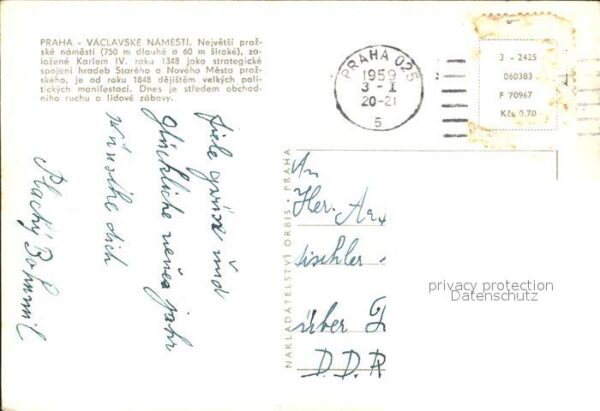 PRAHA - VÁCLAVSKÉ NÁMĚSTÍ. Největší praž-
ské náměstí (750 m dlouhé a 60 m široké), za-
ložené Karlem IV. roku 1348 jako strategické
spojení hradeb Starého a Nového Města praž-
ského, je od roku 1848 dějištěm velkých poli-
tických manifestací. Dnes je středem obchod-
ního ruchu a lidové zábavy.
PRAHA 025
1959
3-I
20-21
5
3 - 2425
060383
F 70967
Kčs 0,70
fiele grüse und
glückliche neues jahr
wünsche dich
Plachý Bohumil
NAKLADATELSTVÍ ORBIS - PRAHA
An
Her.
tischler
über
D.D.R
privacy protection
Datenschutz